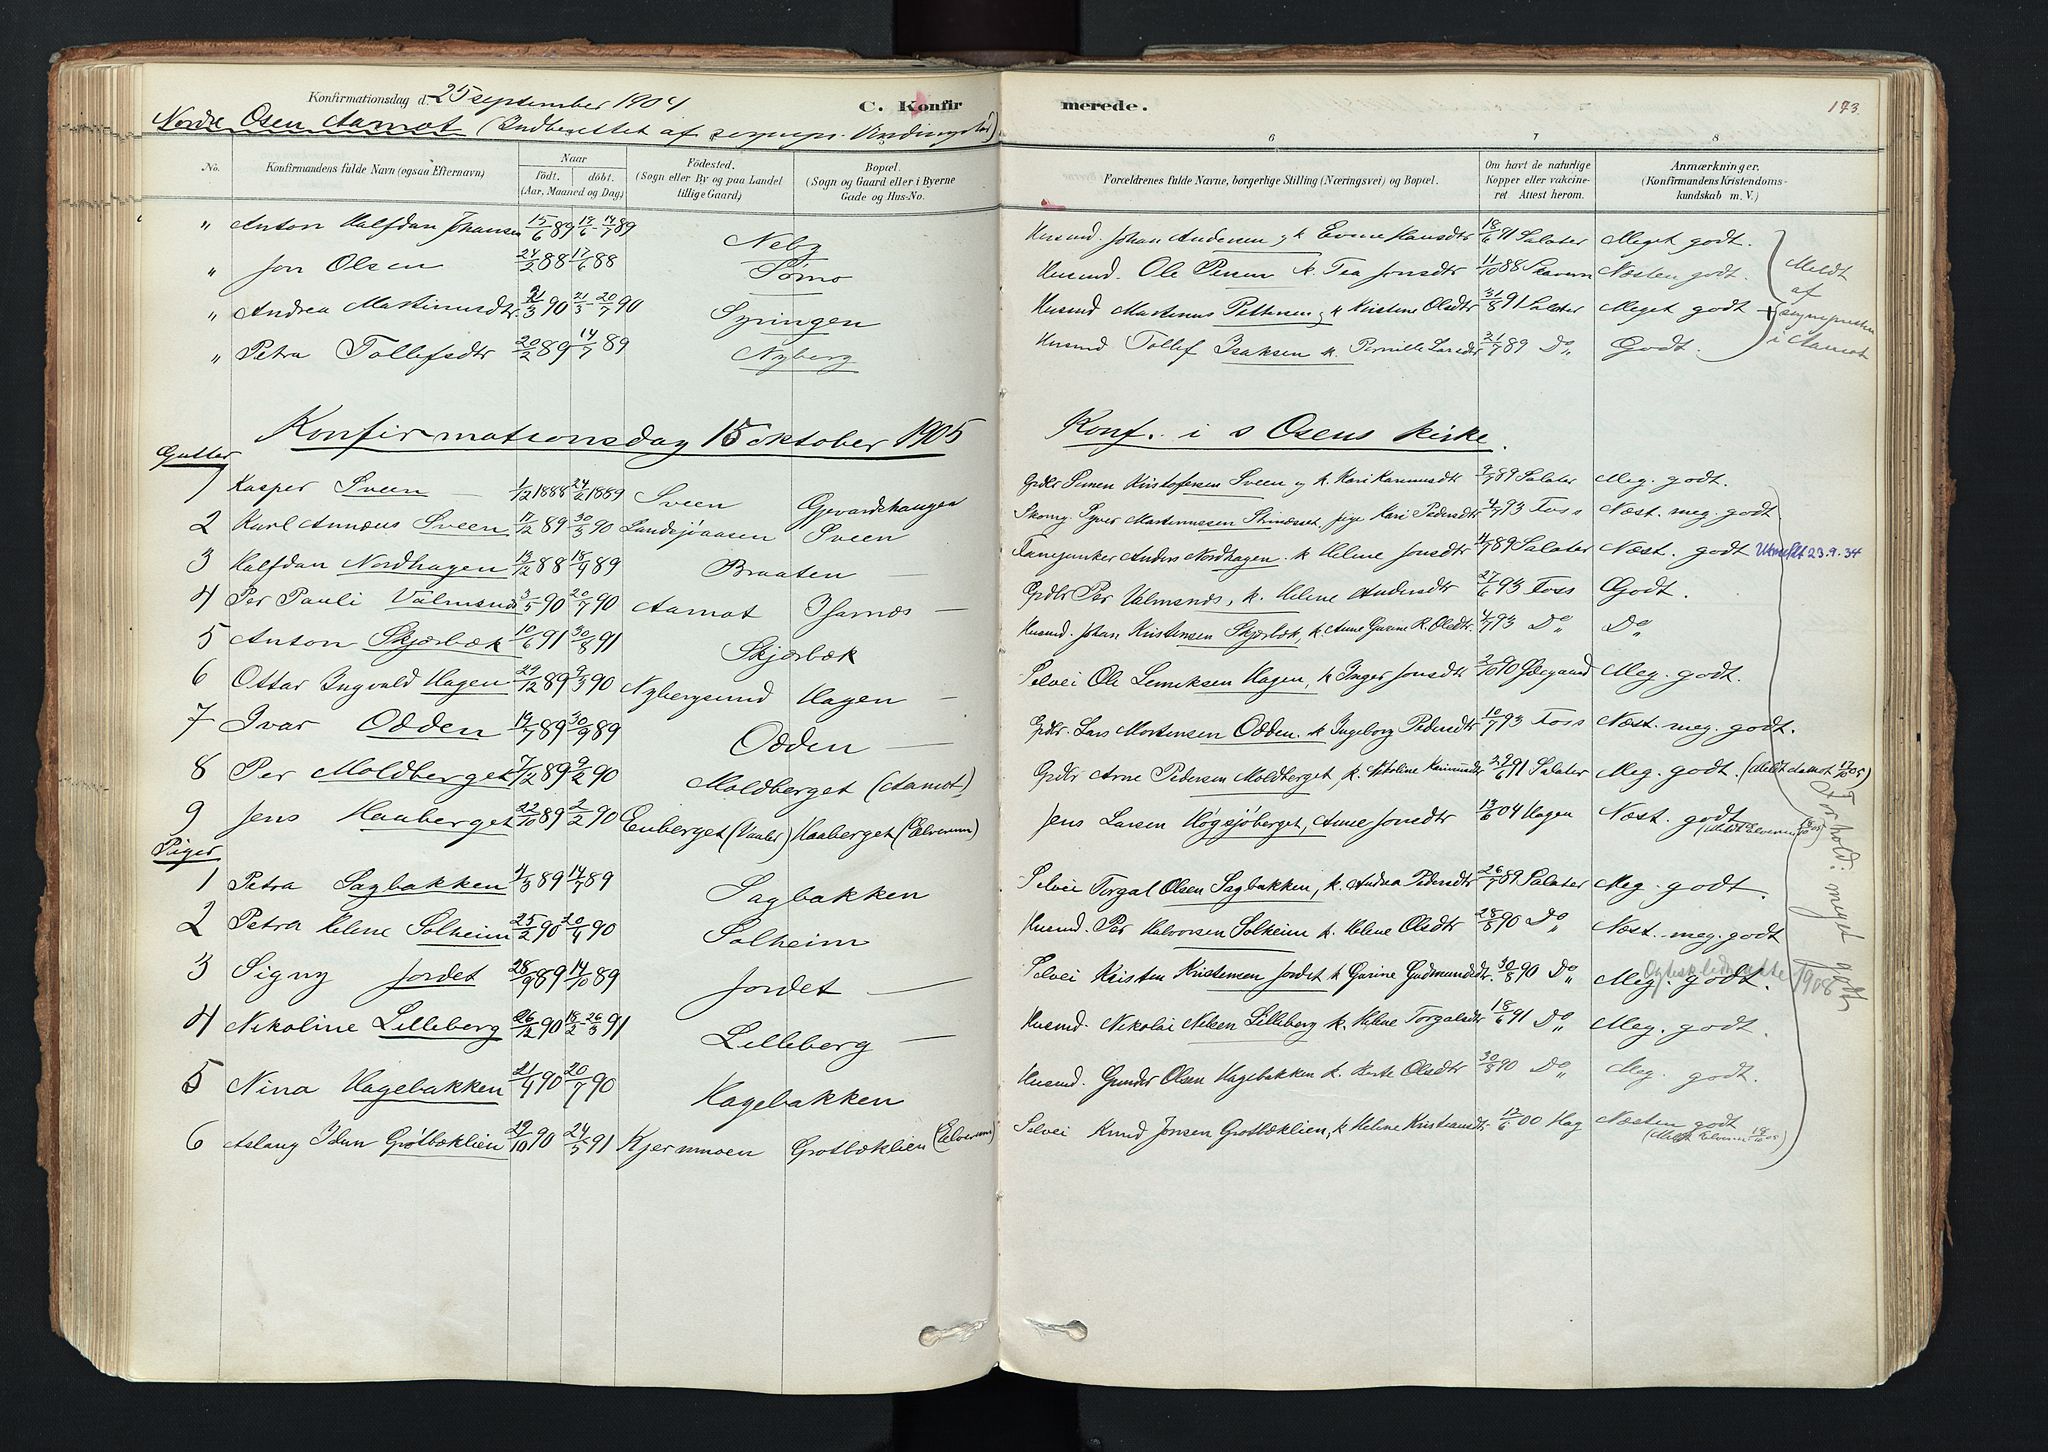 Konfirmationsdag d. 25 september 1904
C. Konfir merede. 173.
Nordre Osen Aamot (Indberettet af sognepr.
6 7 8
No. Konfirmandens fulde Navn (ogsaa Efternavn) Naar født. døbt. (Aar, Maaned og Dag) Fødested. (Sogn eller By og paa Landet tillige Gaard) Bopæl. (Sogn og Gaard eller i Byerne Gade og Hus-No. Forældrenes fulde Navne, borgerlige Stilling (Næringsvei) og Bopæl. Om havt de naturlige Kopper eller vakcineret. Attest herom. Anmærkninger. (Konfirmandens Kristendomskundskab m. V.)
" Anton Halfdan Johansen 15/6 89 Neby Husmd. Johan Andersen og k. Hansdtr 18/6 91 Salater Meget godt.
" Jon Olsen 24/2 88 17/6 88 Sørno Husmd. Ole Persen k. Tea Jonsdtr 11/10 88 Skavern Næsten godt.
" Andrea Martinusdtr 21/3 90 21/3 - 20/7 90 Syringen Husmd Martinus Pettersen og k Kristine Olsdtr 31/8 91 Salater Meget godt
" Petra Tollefsdtr 20/2 89 14/7 89 Nyberg Husmd Tollef Isaksen k. Pernille Larsdtr 21/7 89 Do Godt.
Meldt af sognepresten i Aamot
Konfirmationsdag 15 oktober 1905 Konf. i s Osens kirke.
Gutter
1 Kasper Sveen 1/12 1888 24/2 1889 Sveen Gjevardshaugen Gpdbr Simen Kristofersen Sveen og k. Kari 7/7 89 Salater Meg. godt.
2 Karl Annæus Sveen 17/12 89 30/3 90 Landsjøaasen Sveen Martinussen pige Kari Pedersdtr 4/7 93 Foss Næst. meg. godt
3 Halfdan Nordhagen 13/12 88 18/9 89 Braaten — Fanejunker Anders Nordhagen k Helene Jonsdtr 4/7 89 Salater Næst. godt Utmeldt 23.9.34
4 Per Pauli Valmsnæs 3/5 90 20/7 90 Aamot Osarnæs — Gpdbr Per Valmsnæs, k. Helene Andersdtr 27/6 93 Foss Godt.
5 Anton Skjærbæk 10/6 91 30/8 91 Skjærbæk Husmd. Johan Kristensen Skjærbæk, k. Anne Gurine K. Olsdtr 4/7 93 Do Do
6 Ottar Ingvald Hagen 29/12 89 9/3 90 Nybergsund Hagen — Selvei Ole Hagen, k Inger Jonsdtr 2/10 90 Ødegaard Meg. godt.
7 Ivar Odden 19/7 89 30/9 89 Odden — Gpdbr. Lars Mortensen Odden k Ingeborg Pedersdtr 10/7 93 Foss Næst. meg. godt.
8 Per Moldberget 7/12 89 9/2 90 Moldberget (Aamot) Gpdbr Arne Pedersen Moldberget k. Nikoline 27/6 91 Salater Meg. godt. (Meldt Aamot 17/10 05)
9 Jens Haaberget 22/10 89 2/2 90 Enberget (Vaaler) Haaberget (Elverum) Jens Larsen Høgsjøberget, Anne Jonsdtr 13/6 04 Hagen Næst. godt (Meldt Elverum 18/10 05)
Piger
1 Petra Sagbakken 4/3 89 14/7 89 Sagbakken Selvei Torgal Olsen Sagbakken, k. Andrea Pedersdtr 26/7 89 Salater Meg. godt.
2 Petra Helene Solheim 25/2 90 20/4 90 Solheim Husmd. Per Halvorsen Solheim k. Helene Olsdtr 28/8 90 Do Næst. meg. godt
3 Signy Jordet 28/9 89 14/10 89 Jordet — Selvei Kristen Kristensen Jordet k Gurine Gudmundsdtr. 30/8 90 Do Meg. godt. 1908
4 Nikoline Lilleberg 26/12 90 18/2 - 26/3 91 Lilleberg — Husmd. Nikolai Nilsen Lilleberg k. Helene Torgalsdtr 18/6 91 Do Meg. godt.
5 Nina Hagebakken 21/4 90 20/7 90 Hagebakken Husmd. Gunder Olsen Hagebakken k. Berte Olsdtr 30/8 90 Do Meg. godt.
6 Aslaug Idun Grøtbæklien 29/10 90 24/5 91 Kjernmoen Grøtbæklien (Elverum) Selvei Knud Jonsen Grøtbæklien, k Helene Kristiansdtr. 12/6 00 Hag Næsten godt (Meldt Elverum 18/10 05)
Forhold: meget godt